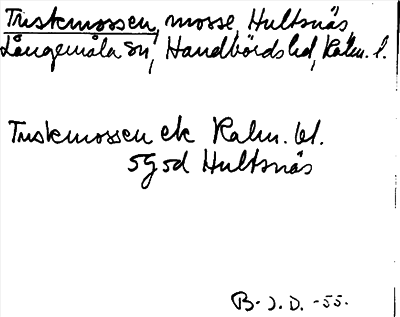 Truskmossen, mosse, Hultsnäs,
Långemåla sn, Handbörds hd, Kalm. l.
Truskmossen ek Kalm. bl.
5G5d Hultsnäs
B. J. D. -55.